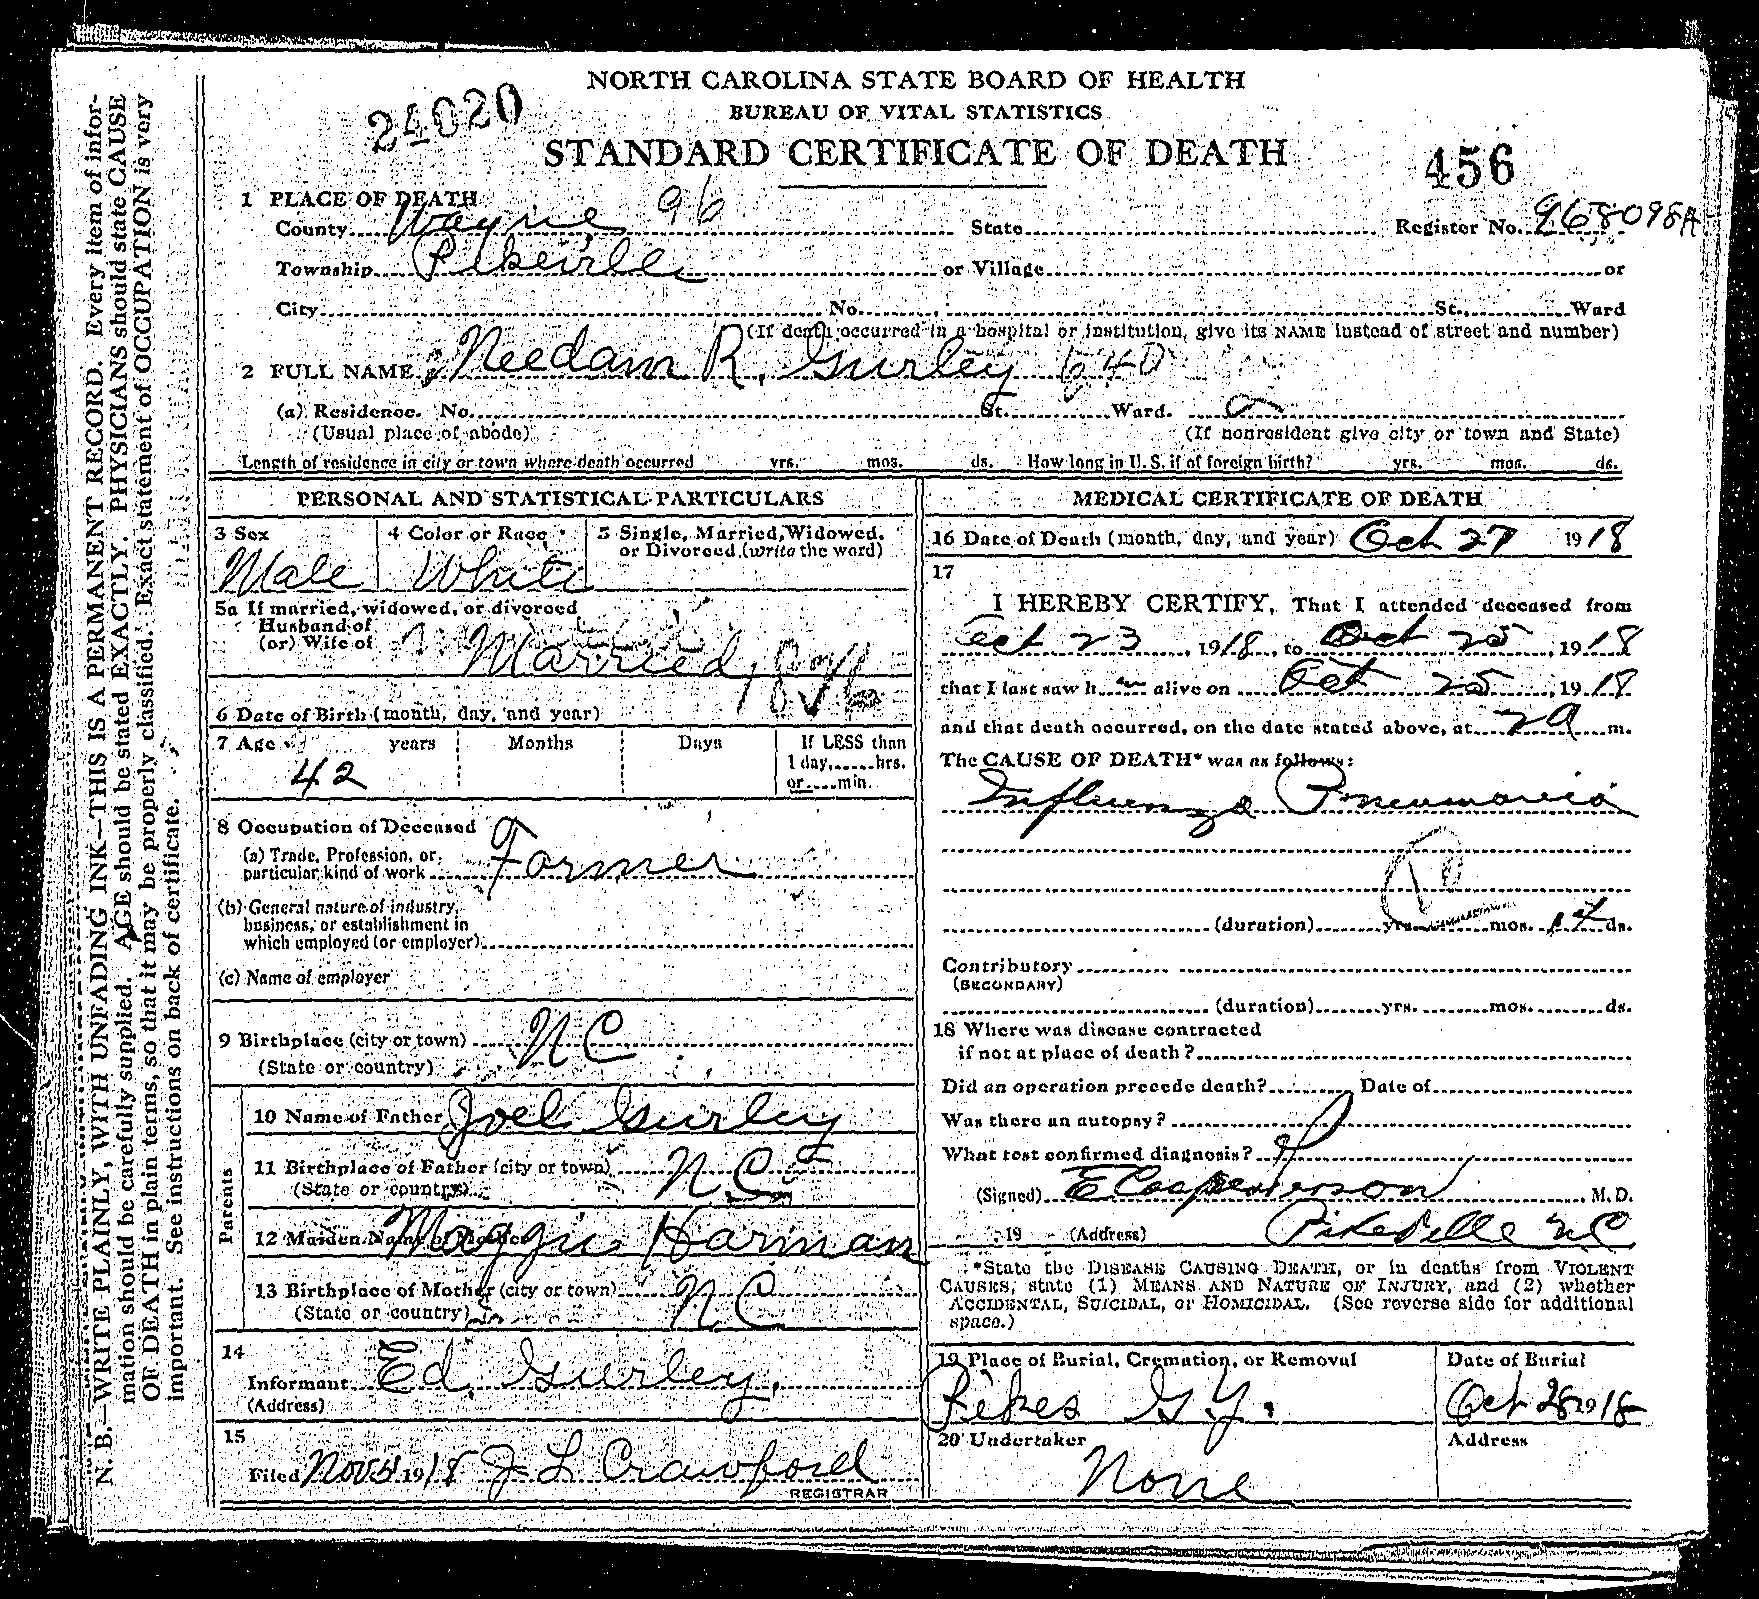 NORTH CAROLINA STATE BOARD OF HEALTH
BUREAU OF VITAL STATISTICS
24020
STANDARD CERTIFICATE OF DEATH
456
1 PLACE OF DEATH
County Wayne 96 State Register No. 968098A
Township Pikeville or Village or
City No. St., Ward
(If death occurred in a hospital or institution, give its NAME instead of street and number)
2 FULL NAME Needam R. Gurley 640
(a) Residence. No. St. Ward.
(Usual place of abode) (If nonresident give city or town and State)
Length of residence in city or town where death occurred yrs. mos. ds. How long in U. S. if of foreign birth? yrs. mos. ds.
PERSONAL AND STATISTICAL PARTICULARS
3 Sex 4 Color or Race 5 Single, Married, Widowed,
or Divorced (write the word)
Male White
5a If married, widowed, or divorced
Husband of
(or) Wife of Married
6 Date of Birth (month, day, and year) 1876
7 Age years Months Days If LESS than
1 day, hrs.
42 or min.
8 Occupation of Deceased
(a) Trade, Profession, or
particular kind of work Farmer
(b) General nature of industry,
business, or establishment in
which employed (or employer)
(c) Name of employer
9 Birthplace (city or town) NC
(State or country)
Parents
10 Name of Father Joel Gurley
11 Birthplace of Father (city or town) N.C.
(State or country)
12 Maiden Name of Mother Maggie Harman
13 Birthplace of Mother (city or town) NC
(State or country)
14
Informant Ed. Gurley.
(Address)
15
Filed Nov 1918 J L Crawford
REGISTRAR
MEDICAL CERTIFICATE OF DEATH
16 Date of Death (month, day, and year) Oct 27 1918
17
I HEREBY CERTIFY, That I attended deceased from
Oct 23, 1918, to Oct 25, 1918
that I last saw h im alive on Oct 25, 1918
and that death occurred, on the date stated above, at 2 a m.
The CAUSE OF DEATH* was as follows:
Influenza Pneumonia
(duration) yrs. mos. 14 ds.
Contributory
(SECONDARY)
(duration) yrs. mos. ds.
18 Where was disease contracted
if not at place of death?
Did an operation precede death? Date of
Was there an autopsy?
What test confirmed diagnosis?
(Signed) M. D.
19 (Address) Pikeville NC
*State the DISEASE CAUSING DEATH, or in deaths from VIOLENT
CAUSES, state (1) MEANS AND NATURE OF INJURY, and (2) whether
ACCIDENTAL, SUICIDAL, or HOMICIDAL. (See reverse side for additional
space.)
19 Place of Burial, Cremation, or Removal Date of Burial
Pikes G. Y. Oct 28 1918
20 Undertaker Address
None
N. B.—WRITE PLAINLY, WITH UNFADING INK—THIS IS A PERMANENT RECORD. Every item of infor-
mation should be carefully supplied. AGE should be stated EXACTLY. PHYSICIANS should state CAUSE
OF DEATH in plain terms, so that it may be properly classified. Exact statement of OCCUPATION is very
important. See instructions on back of certificate.